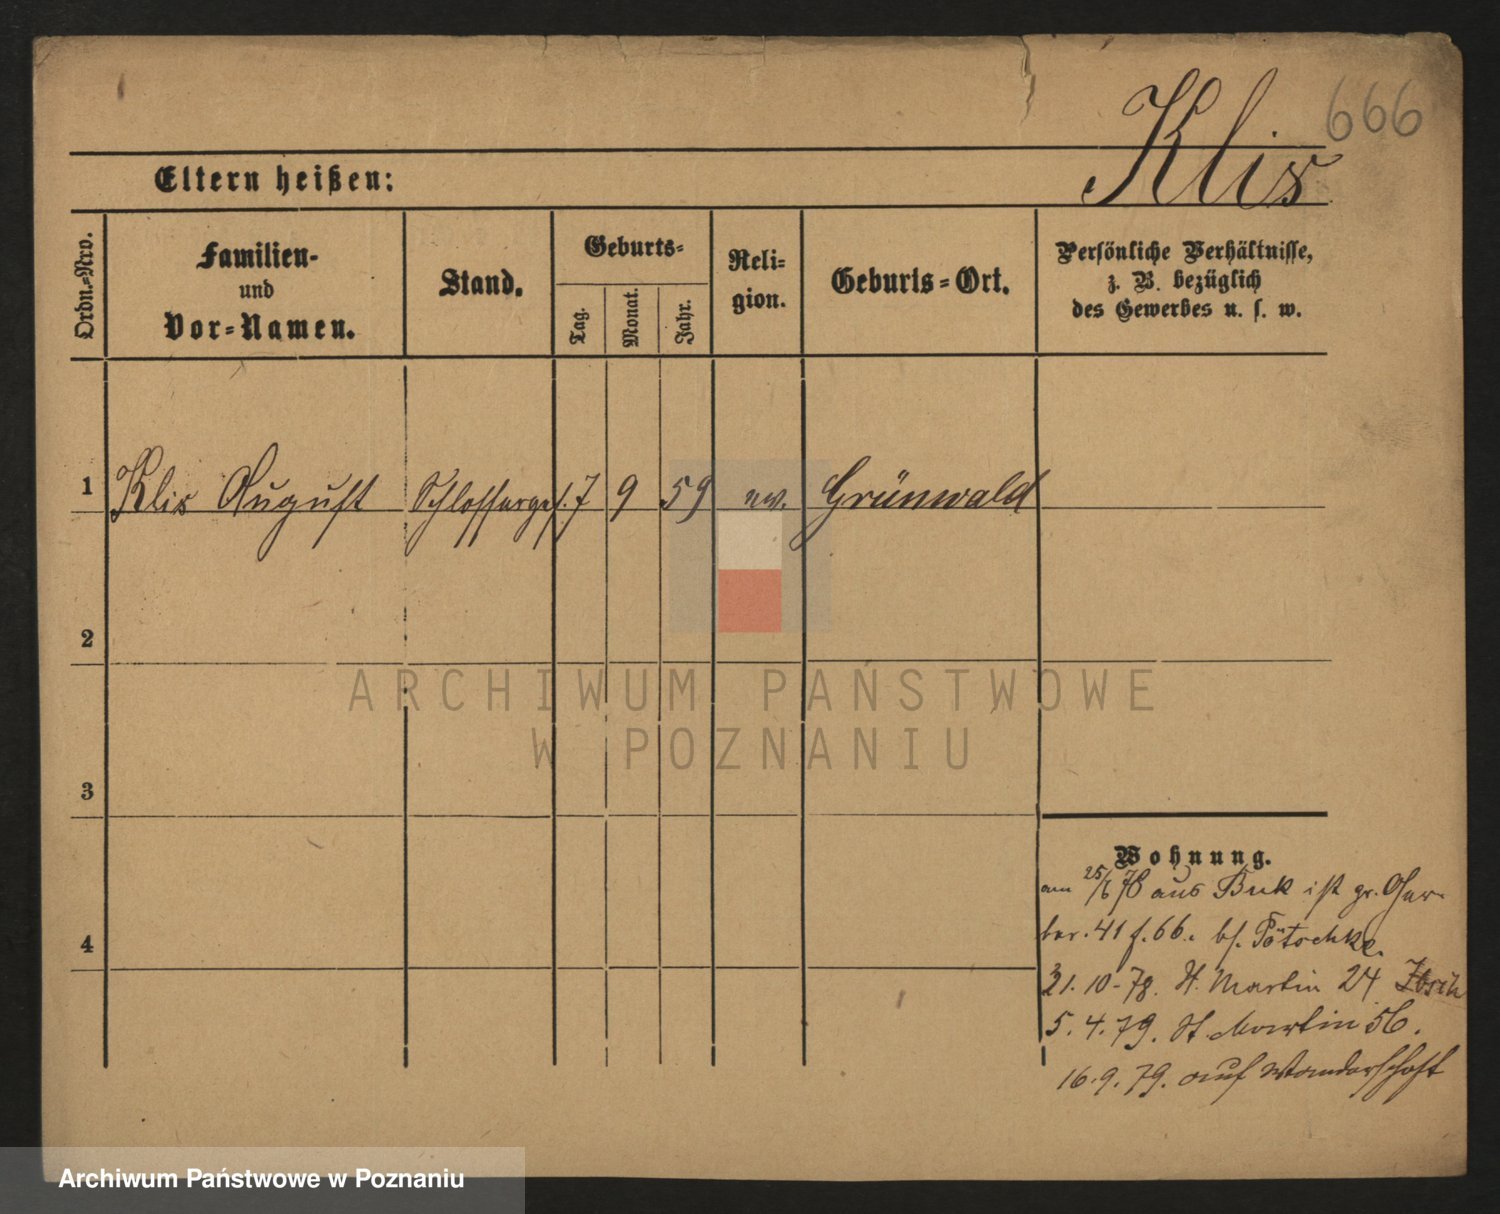 666
Klis
Eltern heißen:
Ordn.-Nro.
Familien-
und
Vor-Namen.
Stand.
Geburts-
Tag.
Monat.
Jahr.
Reli-
gion.
Geburts-Ort.
Persönliche Verhältnisse,
z. B. bezüglich
des Gewerbes u. s. w.
1 Klis August Schlosserges. 7 9 59 ev. Grünwald
2
ARCHIWUM PAŃSTWOWE
W POZNANIU
3
Wohnung.
am 25/6 78 aus Buk ist gr. Ger-
ber. 41 f. 66. bs.
4
21. 10. 78. St. Martin 24
5. 4. 79. St. Martin 56.
16. 9. 79. auf Wanderschaft
Archiwum Państwowe w Poznaniu